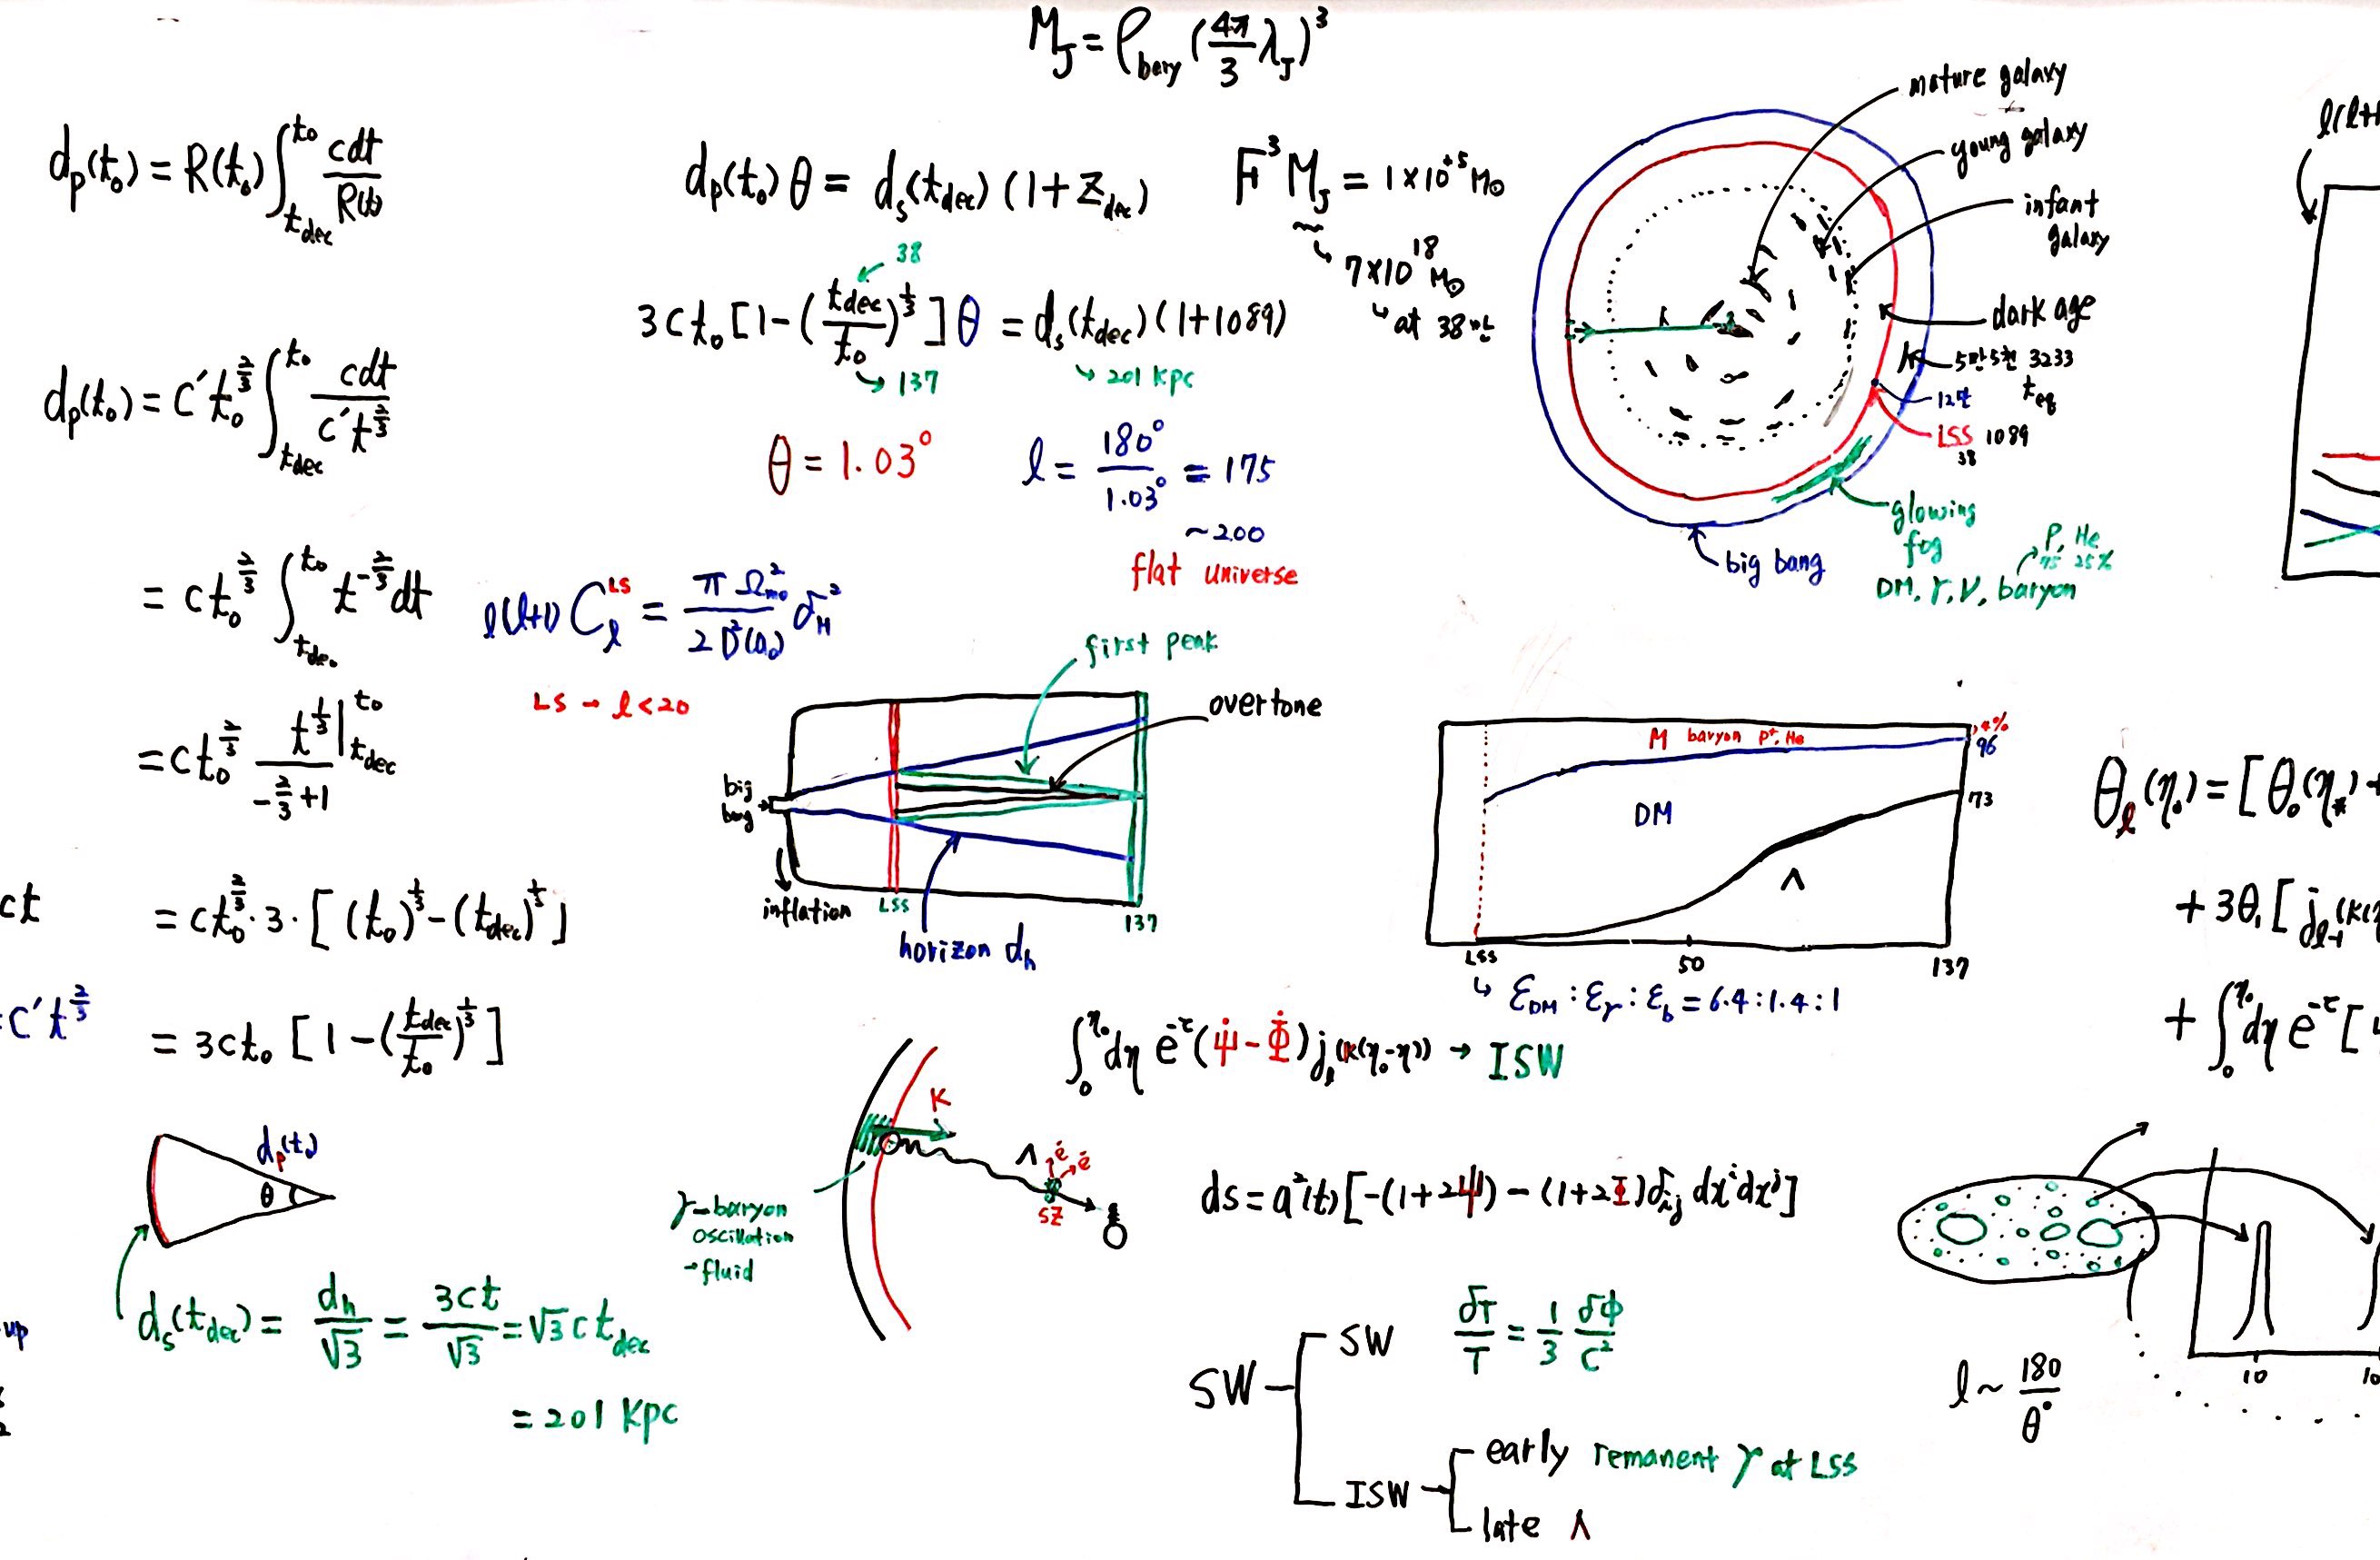 M_J = ρ_bary (4π/3 λ_J)³
d_p(t₀) = R(t₀) ∫_{t_dec}^{t₀} cdt/R(t)
d_p(t₀) = c′t₀^{2/3} ∫_{t_dec}^{t₀} cdt/c′t^{2/3}
= ct₀^{2/3} ∫_{t_dec}^{t₀} t^{-2/3} dt
= ct₀^{2/3} t^{1/3}/(-2/3+1) |_{t_dec}^{t₀}
ct
= ct₀^{2/3}·3·[(t₀)^{1/3} - (t_dec)^{1/3}]
c′t^{2/3}
= 3ct₀ [1-(t_dec/t₀)^{1/3}]
d_p(t₀)
θ
up
d_s(t_dec) = d_h/√3 = 3ct/√3 = √3 ct_dec
= 201 kpc
d_p(t₀) θ = d_s(t_dec) (1+z_dec)
38
3ct₀ [1-(t_dec/t₀)^{1/3}] θ = d_s(t_dec) (1+1089)
137
201 kpc
θ = 1.03°
l = 180°/1.03° = 175
~200
flat universe
l(l+1) C_l^{LS} = πΩ_{m0}²/2D²(a₀) δ_H²
LS → l<20
first peak
overtone
big bang
inflation
LSS
horizon d_h
137
F³ M_J = 1×10^{+5} M⊙
7×10^{18} M⊙
at 38만
mature galaxy
young galaxy
infant galaxy
dark age
5만5천 3233
t_eq
12만
LSS 1089
38
glowing fog
P, He
75 25%
DM, γ, ν, baryon
big bang
l(l+
M baryon P⁺, He
96
DM
73
Λ
LSS
50
137
ε_DM : ε_γ : ε_b = 6.4 : 1.4 : 1
∫₀^{η₀} dη e^{-τ} (ψ̇ - Φ̇) j_l(k(η₀-η)) → ISW
K
Λ
e
e
SZ
γ-baryon
oscillation
→fluid
ds = a²(t) [-(1+2Ψ) - (1+2Φ) δ_ij dx^i dx^j]
SW
SW δT/T = 1/3 δΦ/C²
ISW
early remanent γ at LSS
late Λ
Θ_l(η₀) = [Θ₀(η_*) +
+ 3Θ₁ [j_{l-1}(k(η
+ ∫₀^{η₀} dη e^{-τ} [
10
l ~ 180/θ°